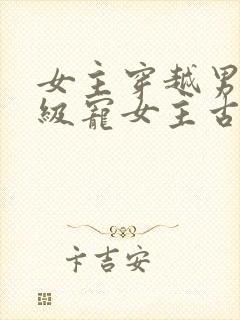 女主穿越男
級寵女主古
卡吉安